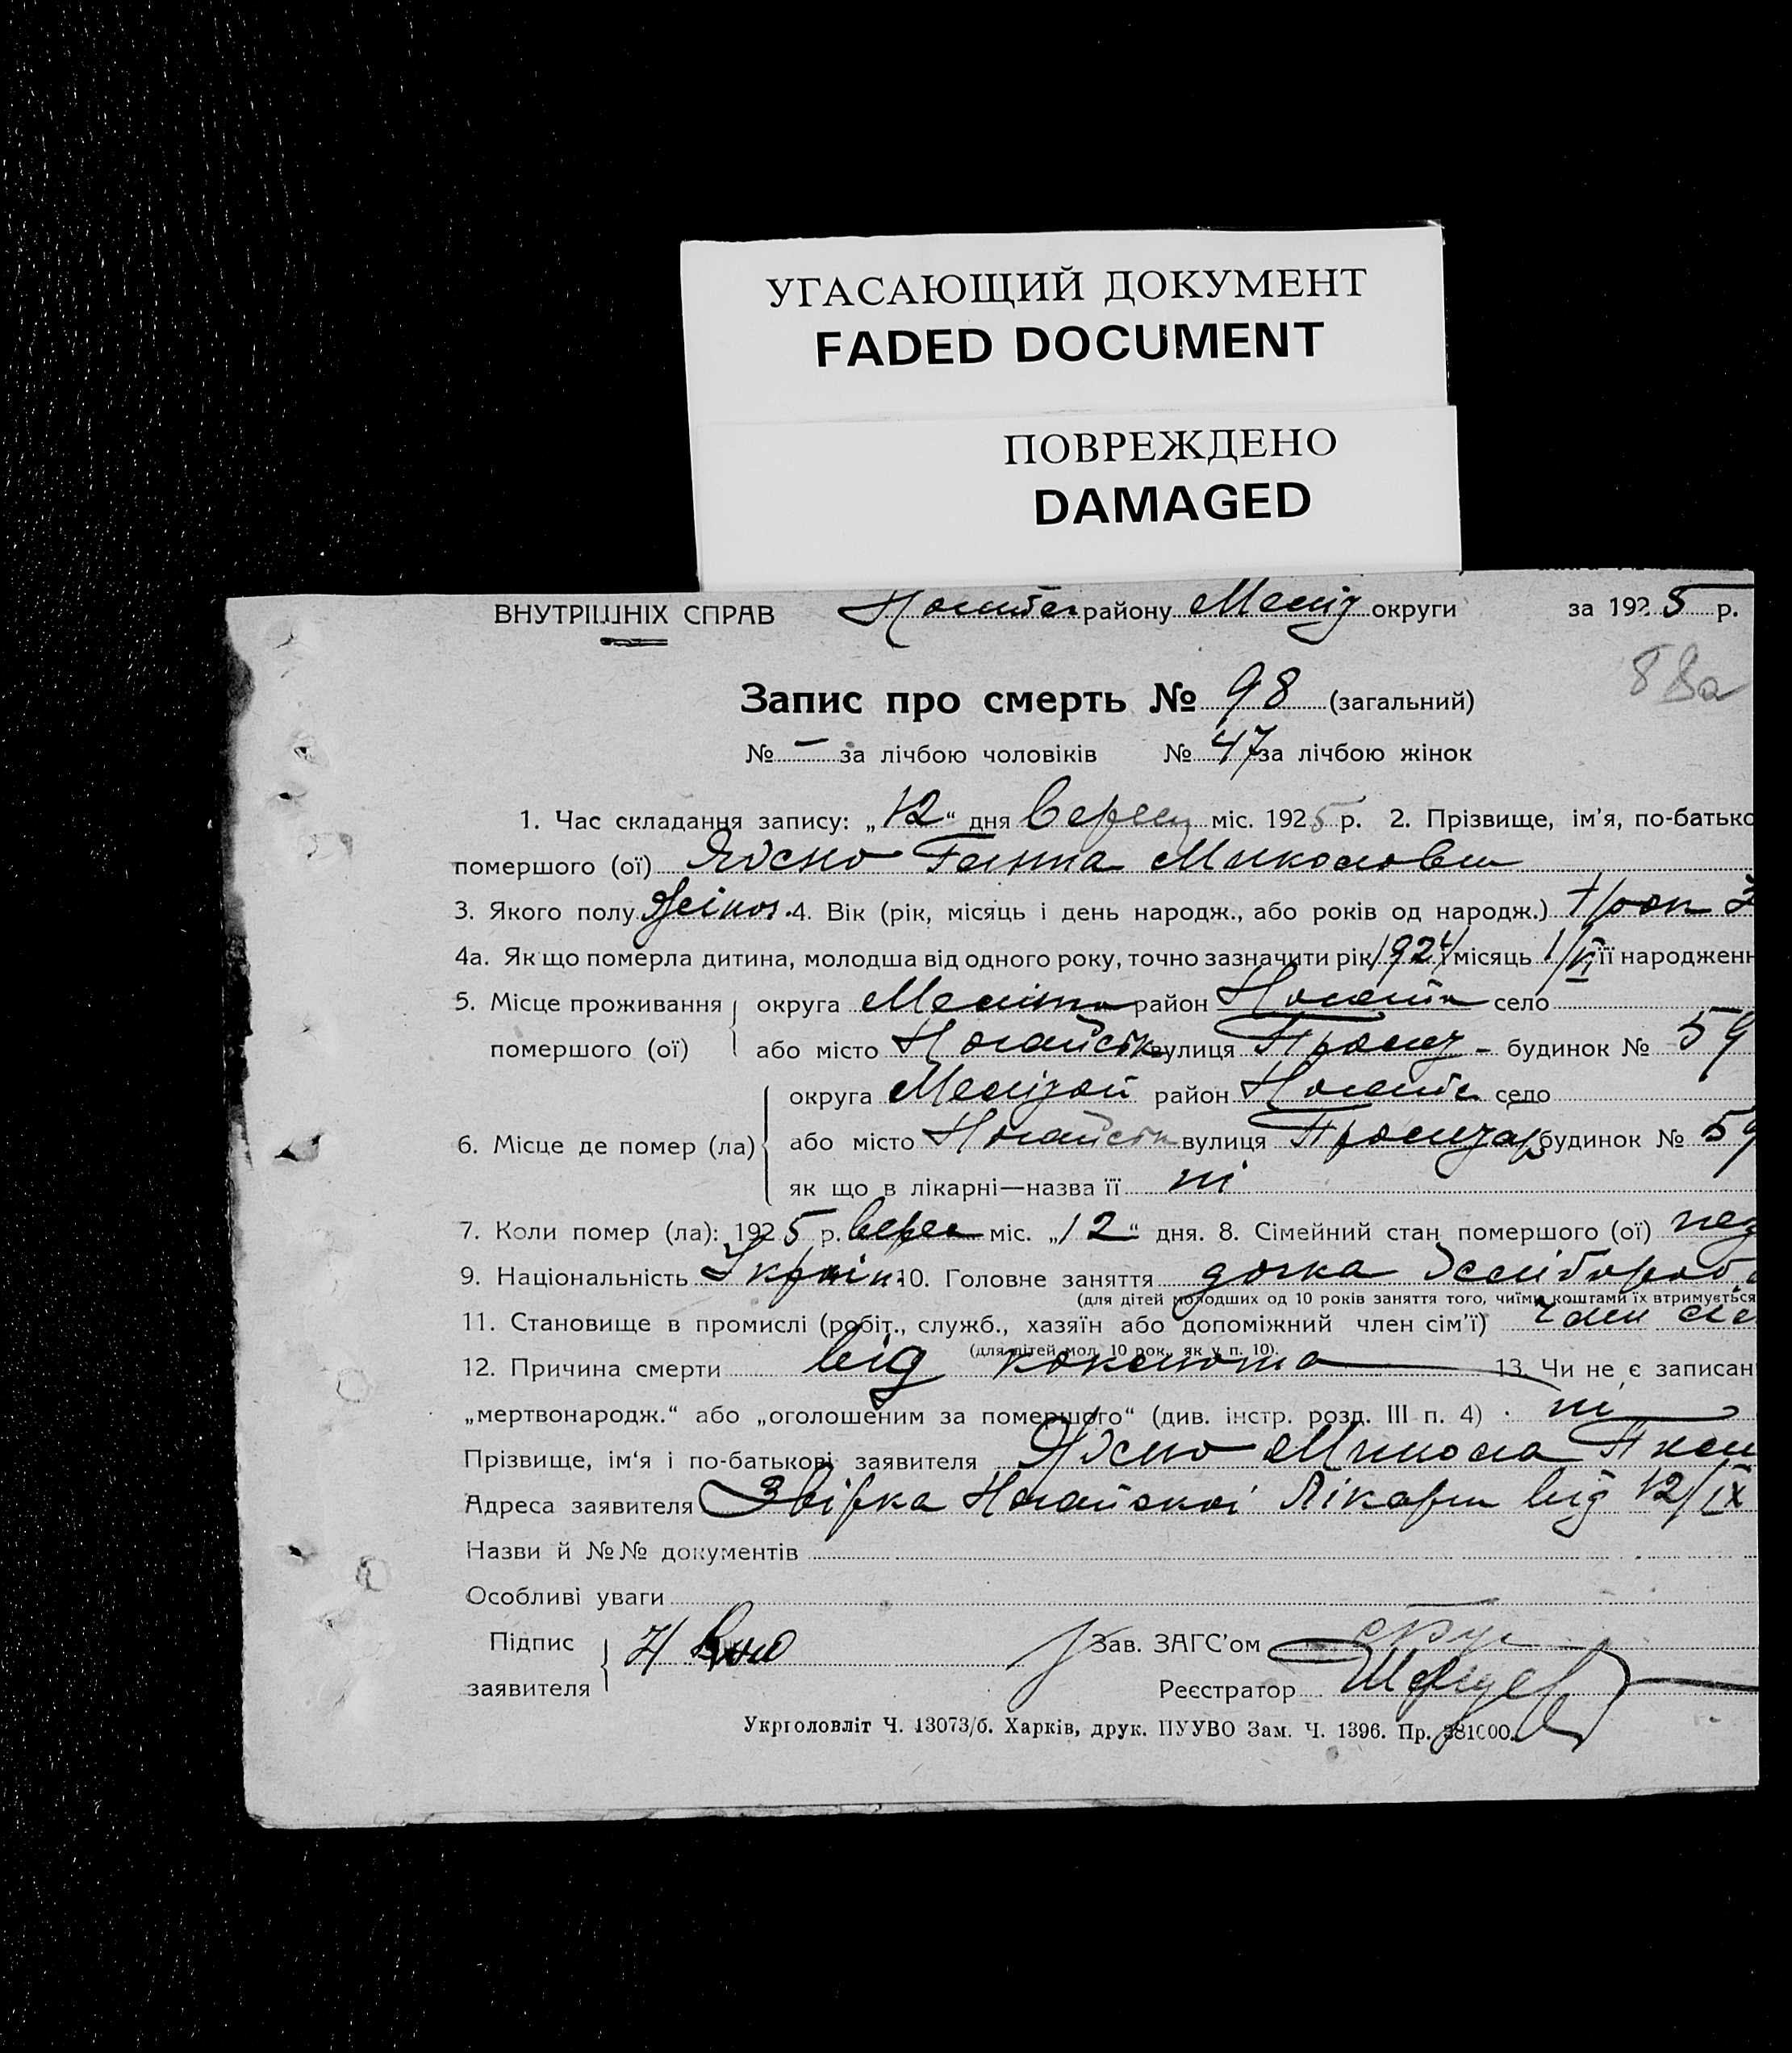 УГАСАЮЩИЙ ДОКУМЕНТ
FADED DOCUMENT
ПОВРЕЖДЕНО
DAMAGED
ВНУТРІШНІХ СПРАВ району Меліт округи за 1925 р.
88а
Запис про смерть № 98 (загальний)
№ — за лічбою чоловіків № 47 за лічбою жінок
1. Час складання запису: „12“ дня Вересн міс. 1925 р. 2. Прізвище, ім'я, по-батько
помершого (ої) Ганна Миколовн
3. Якого полу Жіноч. 4. Вік (рік, місяць і день народж., або років од народж.)
4а. Якщо померла дитина, молодша від одного року, точно зазначити рік 1924 місяць 1/VI її народженн
5. Місце проживання округа Меліт район село
помершого (ої) або місто Ногайськ вулиця будинок № 59
округа район село
6. Місце де помер (ла) або місто Ногайськ вулиця будинок № 59
як що в лікарні—назва її ні
7. Коли помер (ла): 1925 р. верес міс. „12“ дня. 8. Сімейний стан помершого (ої)
9. Національність Україн. 10. Головне заняття дочка
(для дітей молодших од 10 років заняття того, чиїми коштами їх втримується
11. Становище в промислі (робіт., служб., хазяїн або допоміжний член сім'ї) член сім
(для дітей мол. 10 рок., як у п. 10).
12. Причина смерти від коклюша 13. Чи не є записан
„мертвонародж.“ або „оголошеним за помершого“ (див. інстр. розд. III п. 4) ні
Прізвище, ім'я і по-батькові заявителя Микола
Адреса заявителя Ногайської Лікарн від 12/IX
Назви й №№ документів
Особливі уваги
Підпис Зав. ЗАГС'ом
заявителя Реєстратор
Укрголовліт Ч. 13073/б. Харків, друк. ПУУВО Зам. Ч. 1396. Пр. 381000.